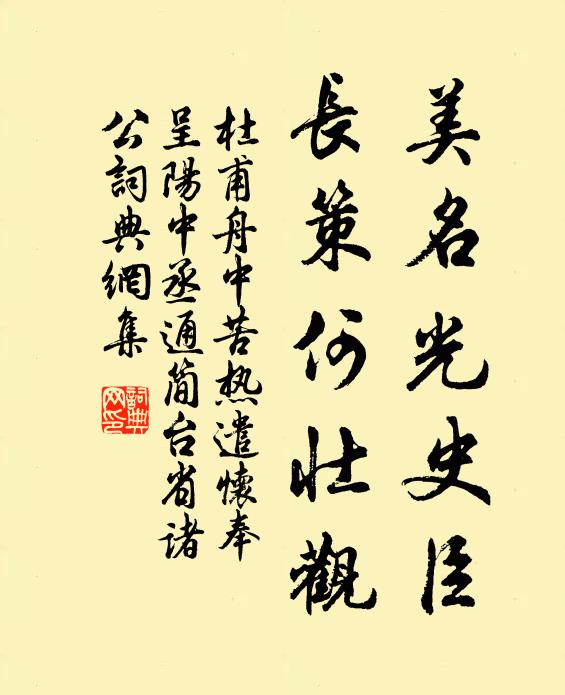 美名光史臣
長策何壯觀
杜甫舟中苦热遣懷奉
呈陽中丞通简台省诸
公詞典網集
詞典
网印